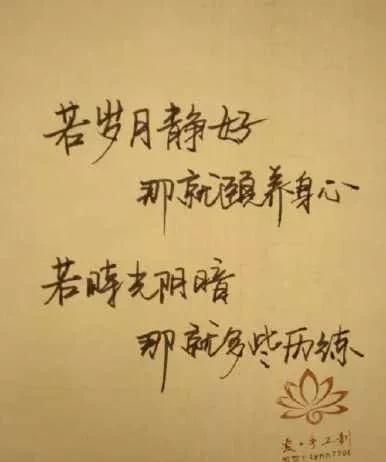 若岁月静好
那就颐养身心
若時光阴暗
那就多些历练